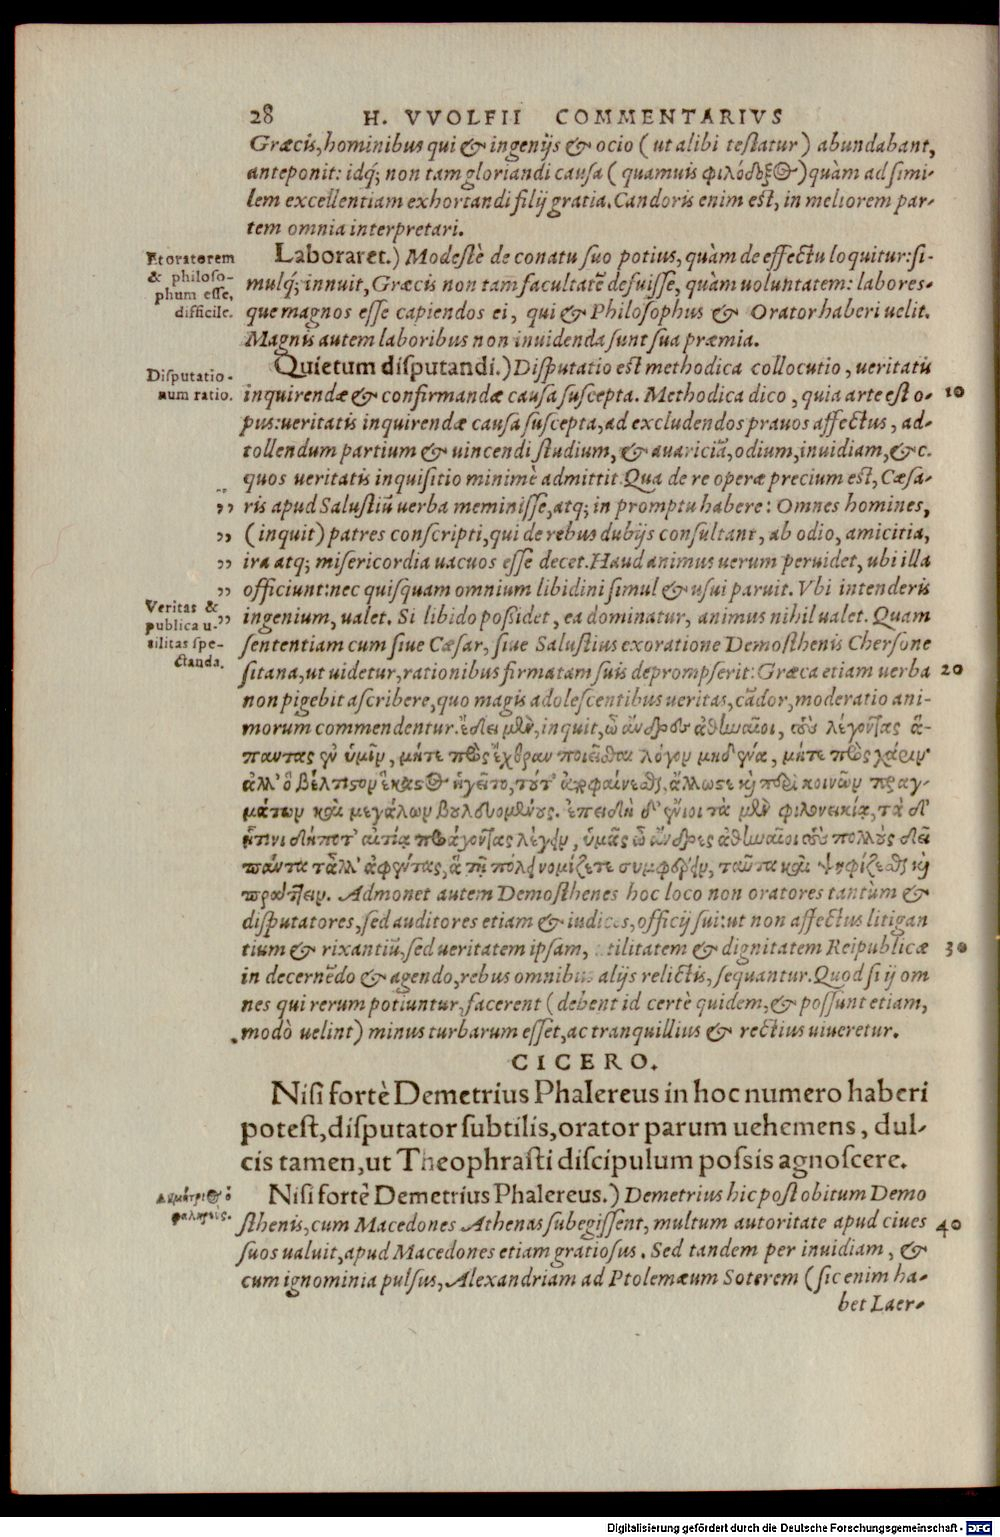 28 H. VVOLFII COMMENTARIVS
Græcis, hominibus qui & ingenijs & ocio (ut alibi testatur) abundabant,
anteponit: idq́; non tam gloriandi causa (quamuis φιλόδοξος) quàm ad simi-
lem excellentiam exhortandi filij gratia. Candoris enim est, in meliorem par-
tem omnia interpretari.
Et oratorem
& philoso-
phum esse,
difficile.
Laboraret.) Modestè de conatu suo potius, quàm de effectu loquitur: si-
mulq́; innuit, Græcis non tam facultatē defuisse, quàm uoluntatem: labores-
que magnos esse capiendos ei, qui & Philosophus & Orator haberi uelit.
Magnis autem laboribus non inuidenda sunt sua præmia.
Disputatio-
num ratio.
Quietum disputandi.) Disputatio est methodica collocutio, ueritatis
inquirendæ & confirmandæ causa suscepta. Methodica dico, quia arte est o- 10
pus: ueritatis inquirendæ causa suscepta, ad excludendos prauos affectus, ad-
tollendum partium & uincendi studium, & auariciā, odium, inuidiam, & c.
quos ueritatis inquisitio minimè admittit. Qua de re operæ precium est, Cæsa-
,, ris apud Salustiū uerba meminisse, atq; in promptu habere: Omnes homines,
,, (inquit) patres conscripti, qui de rebus dubijs consultant, ab odio, amicitia,
,, ira atq; misericordia uacuos esse decet. Haud animus uerum peruidet, ubi illa
,, officiunt: nec quisquam omnium libidini simul & usui paruit. Vbi intenderis
,, ingenium, ualet. Si libido possidet, ea dominatur, animus nihil ualet. Quam
Veritas &
publica u-
tilitas spe-
ctanda.
sententiam cum siue Cæsar, siue Salustius ex oratione Demosthenis Chersone
sitana, ut uidetur, rationibus firmatam suis deprompserit: Græca etiam uerba 20
non pigebit ascribere, quo magis adolescentibus ueritas, cādor, moderatio ani-
morum commendentur. ἔδει μὲν, inquit, ὦ ἄνδρες ἀθηναῖοι, τοὺς λέγοντας ἅ-
παντας ἐν ὑμῖν, μήτε πρὸς ἔχθραν ποιεῖσθαι λόγον μηδένα, μήτε πρὸς χάριν
ἀλλ' ὃ βέλτιστον ἕκαστος ἡγεῖτο, τοῦτ' ἀποφαίνεσθαι, ἄλλωστε καὶ περὶ κοινῶν πραγ-
μάτων καὶ μεγάλων βουλευομένους. ἐπειδὴ δ' ἔνιοι τὰ μὲν φιλονεικίᾳ, τὰ δ'
ᾗτινι δήποτ' αἰτίᾳ προάγονται λέγειν, ὑμᾶς ὦ ἄνδρες ἀθηναῖοι τοὺς πολλοὺς δεῖ
πάντα τἆλλ' ἀφέντας, ἃ τῇ πόλει νομίζετε συμφέρειν, ταῦτα καὶ ψηφίζεσθαι καὶ
πράττειν. Admonet autem Demosthenes hoc loco non oratores tantùm &
disputatores, sed auditores etiam & iudices, officij sui: ut non affectus litigan
tium & rixantiū, sed ueritatem ipsam, utilitatem & dignitatem Reipublicæ 30
in decernēdo & agendo, rebus omnibus alijs relictis, sequantur. Quod si ij om
nes qui rerum potiuntur, facerent (debent id certè quidem, & possunt etiam,
modò uelint) minus turbarum esset, ac tranquillius & rectius uiueretur.
CICERO.
Nisi fortè Demetrius Phalereus in hoc numero haberi
potest, disputator subtilis, orator parum uehemens, dul-
cis tamen, ut Theophrasti discipulum possis agnoscere.
Δημήτριος ὁ
φαληρεύς.
Nisi fortè Demetrius Phalereus.) Demetrius hic post obitum Demo
sthenis, cum Macedones Athenas subegissent, multum autoritate apud ciues 40
suos ualuit, apud Macedones etiam gratiosus. Sed tandem per inuidiam, &
cum ignominia pulsus, Alexandriam ad Ptolemæum Soterem (sic enim ha-
bet Laer-
Digitalisierung gefördert durch die Deutsche Forschungsgemeinschaft - DFG